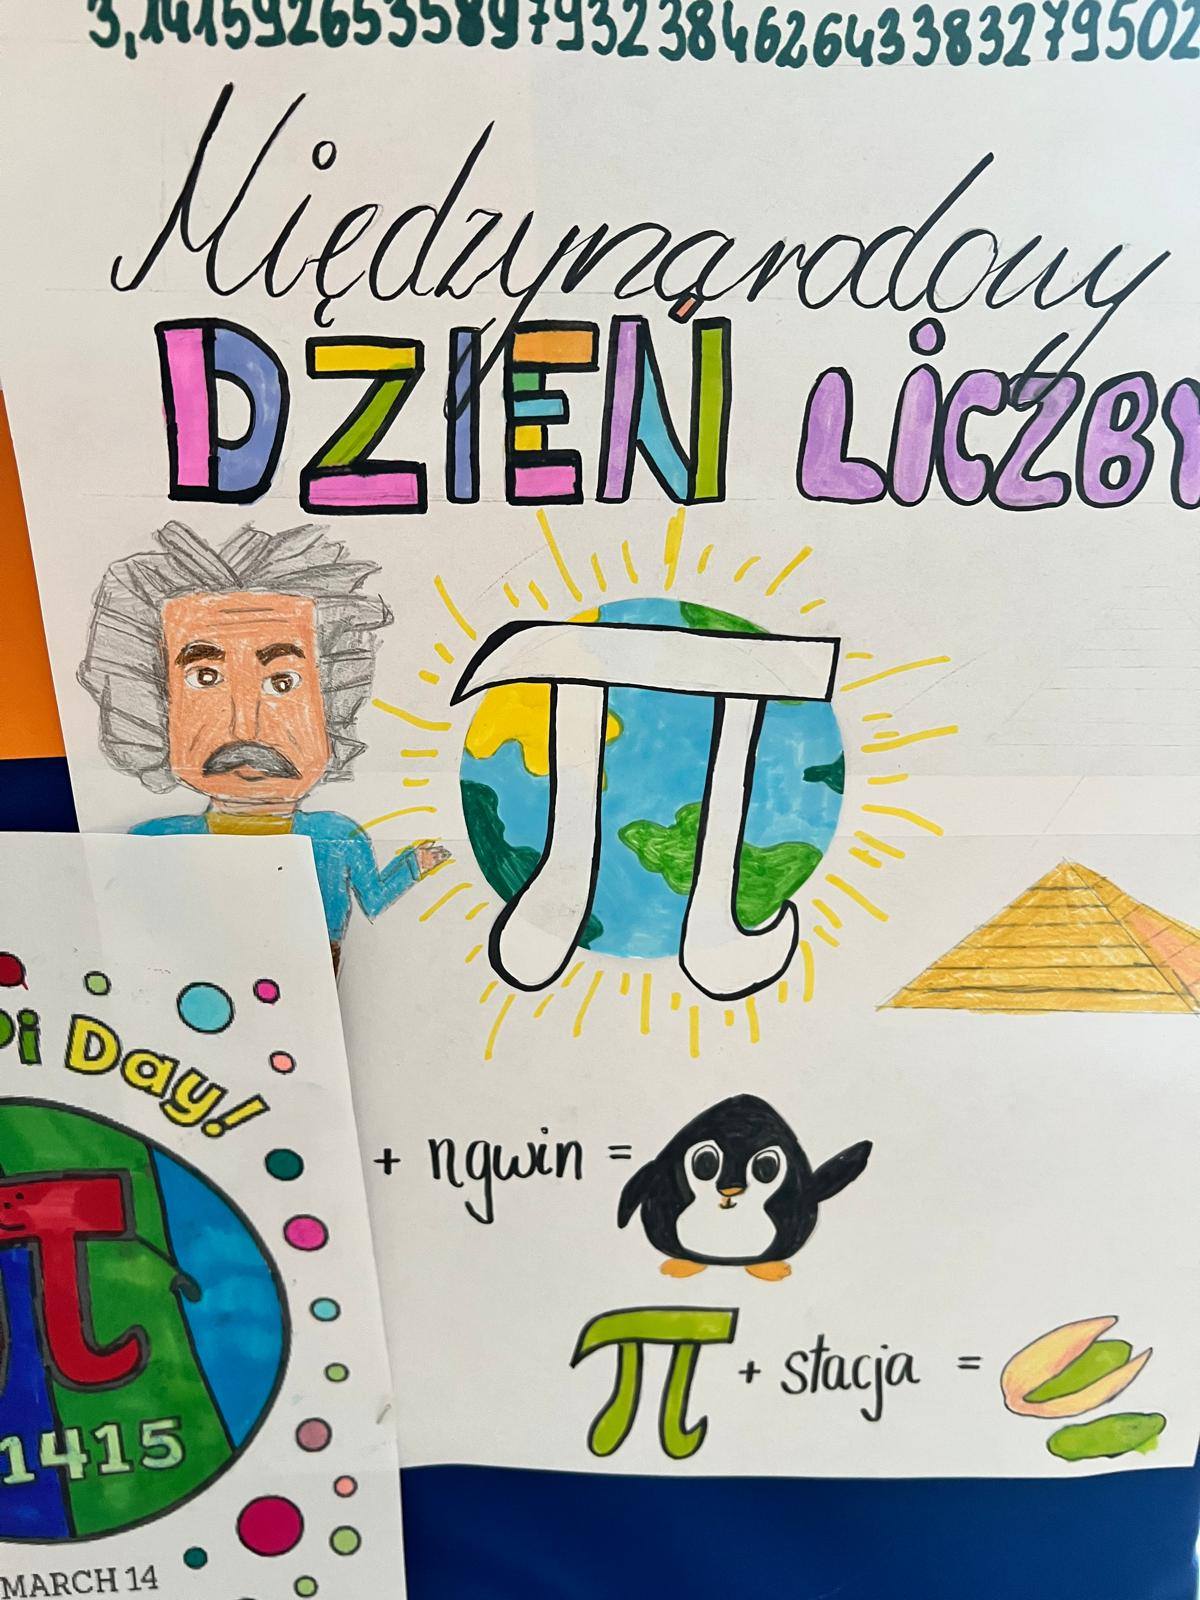 3,14159265358979323846264338327950​2
Międzynarodowy
DZIEŃ LICZBY
π
+ ngwin =
π + stacja =
Pi Day!
π
1415
MARCH 14